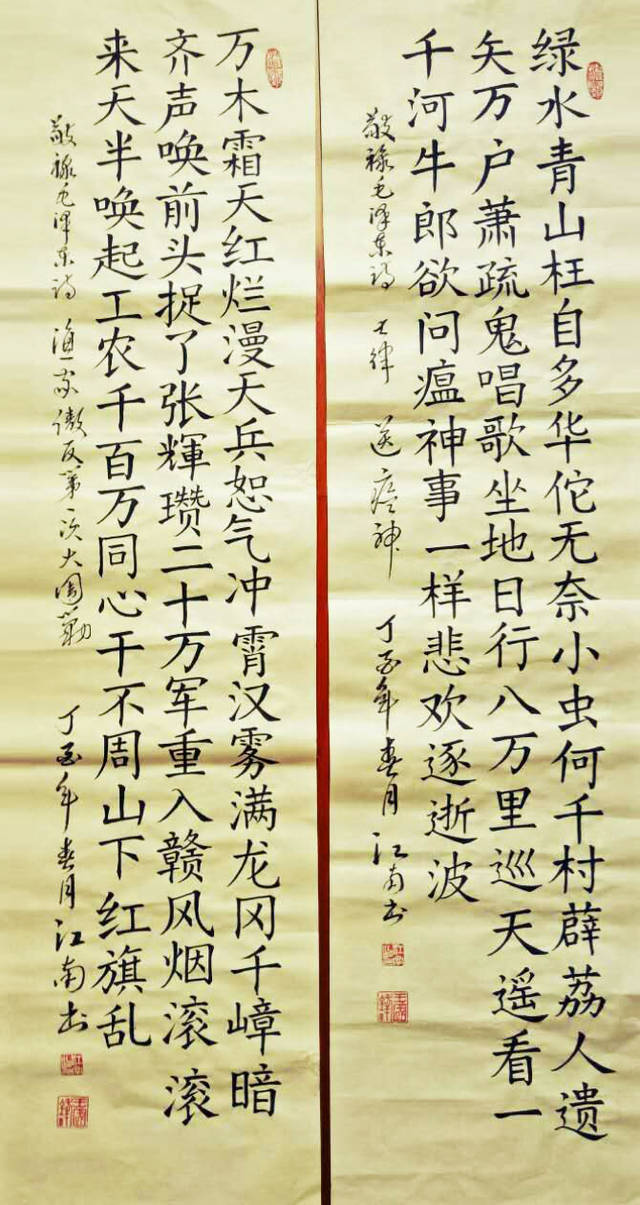 绿水青山枉自多华佗无奈小虫何千村薜荔人遗
矢万户萧疏鬼唱歌坐地日行八万里巡天遥看一
千河牛郎欲问瘟神事一样悲欢逐逝波
敬録毛泽东诗 七律 送瘟神 丁酉年春月江南书
万木霜天红烂漫天兵恕气冲霄汉雾满龙冈千嶂暗
齐声唤前头捉了张輝瓒二十万军重入赣风烟滚滚
来天半唤起工农千百万同心干不周山下红旗乱
敬録毛泽东诗 渔家傲反第一次大围勦 丁酉年春月江南书